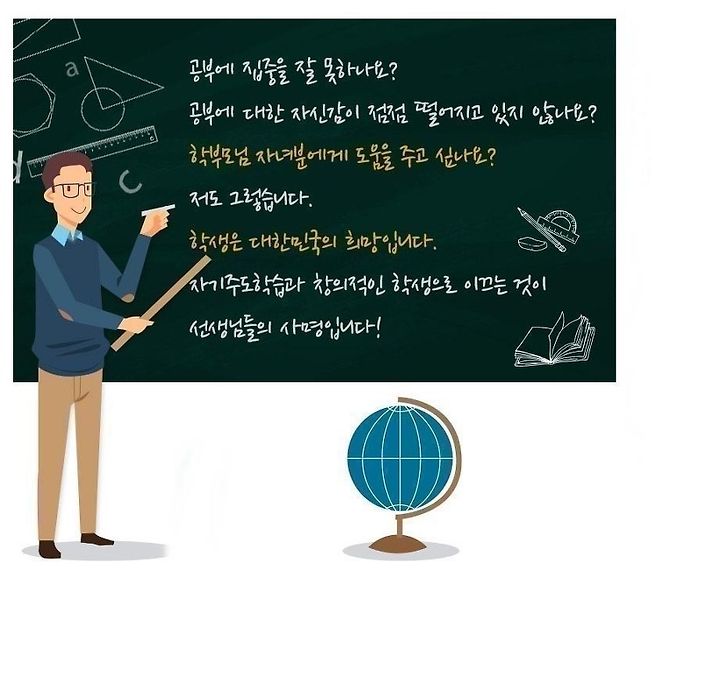 a
공부에 집중을 잘 못하나요?
공부에 대한 자신감이 점점 떨어지고 있지 않나요?
d
학부모님 자녀분에게 도움을 주고 싶나요?
c
저도 그렇습니다.
학생은 대한민국의 희망입니다.
자기주도학습과 창의적인 학생으로 이끄는 것이
선생님들의 사명입니다!